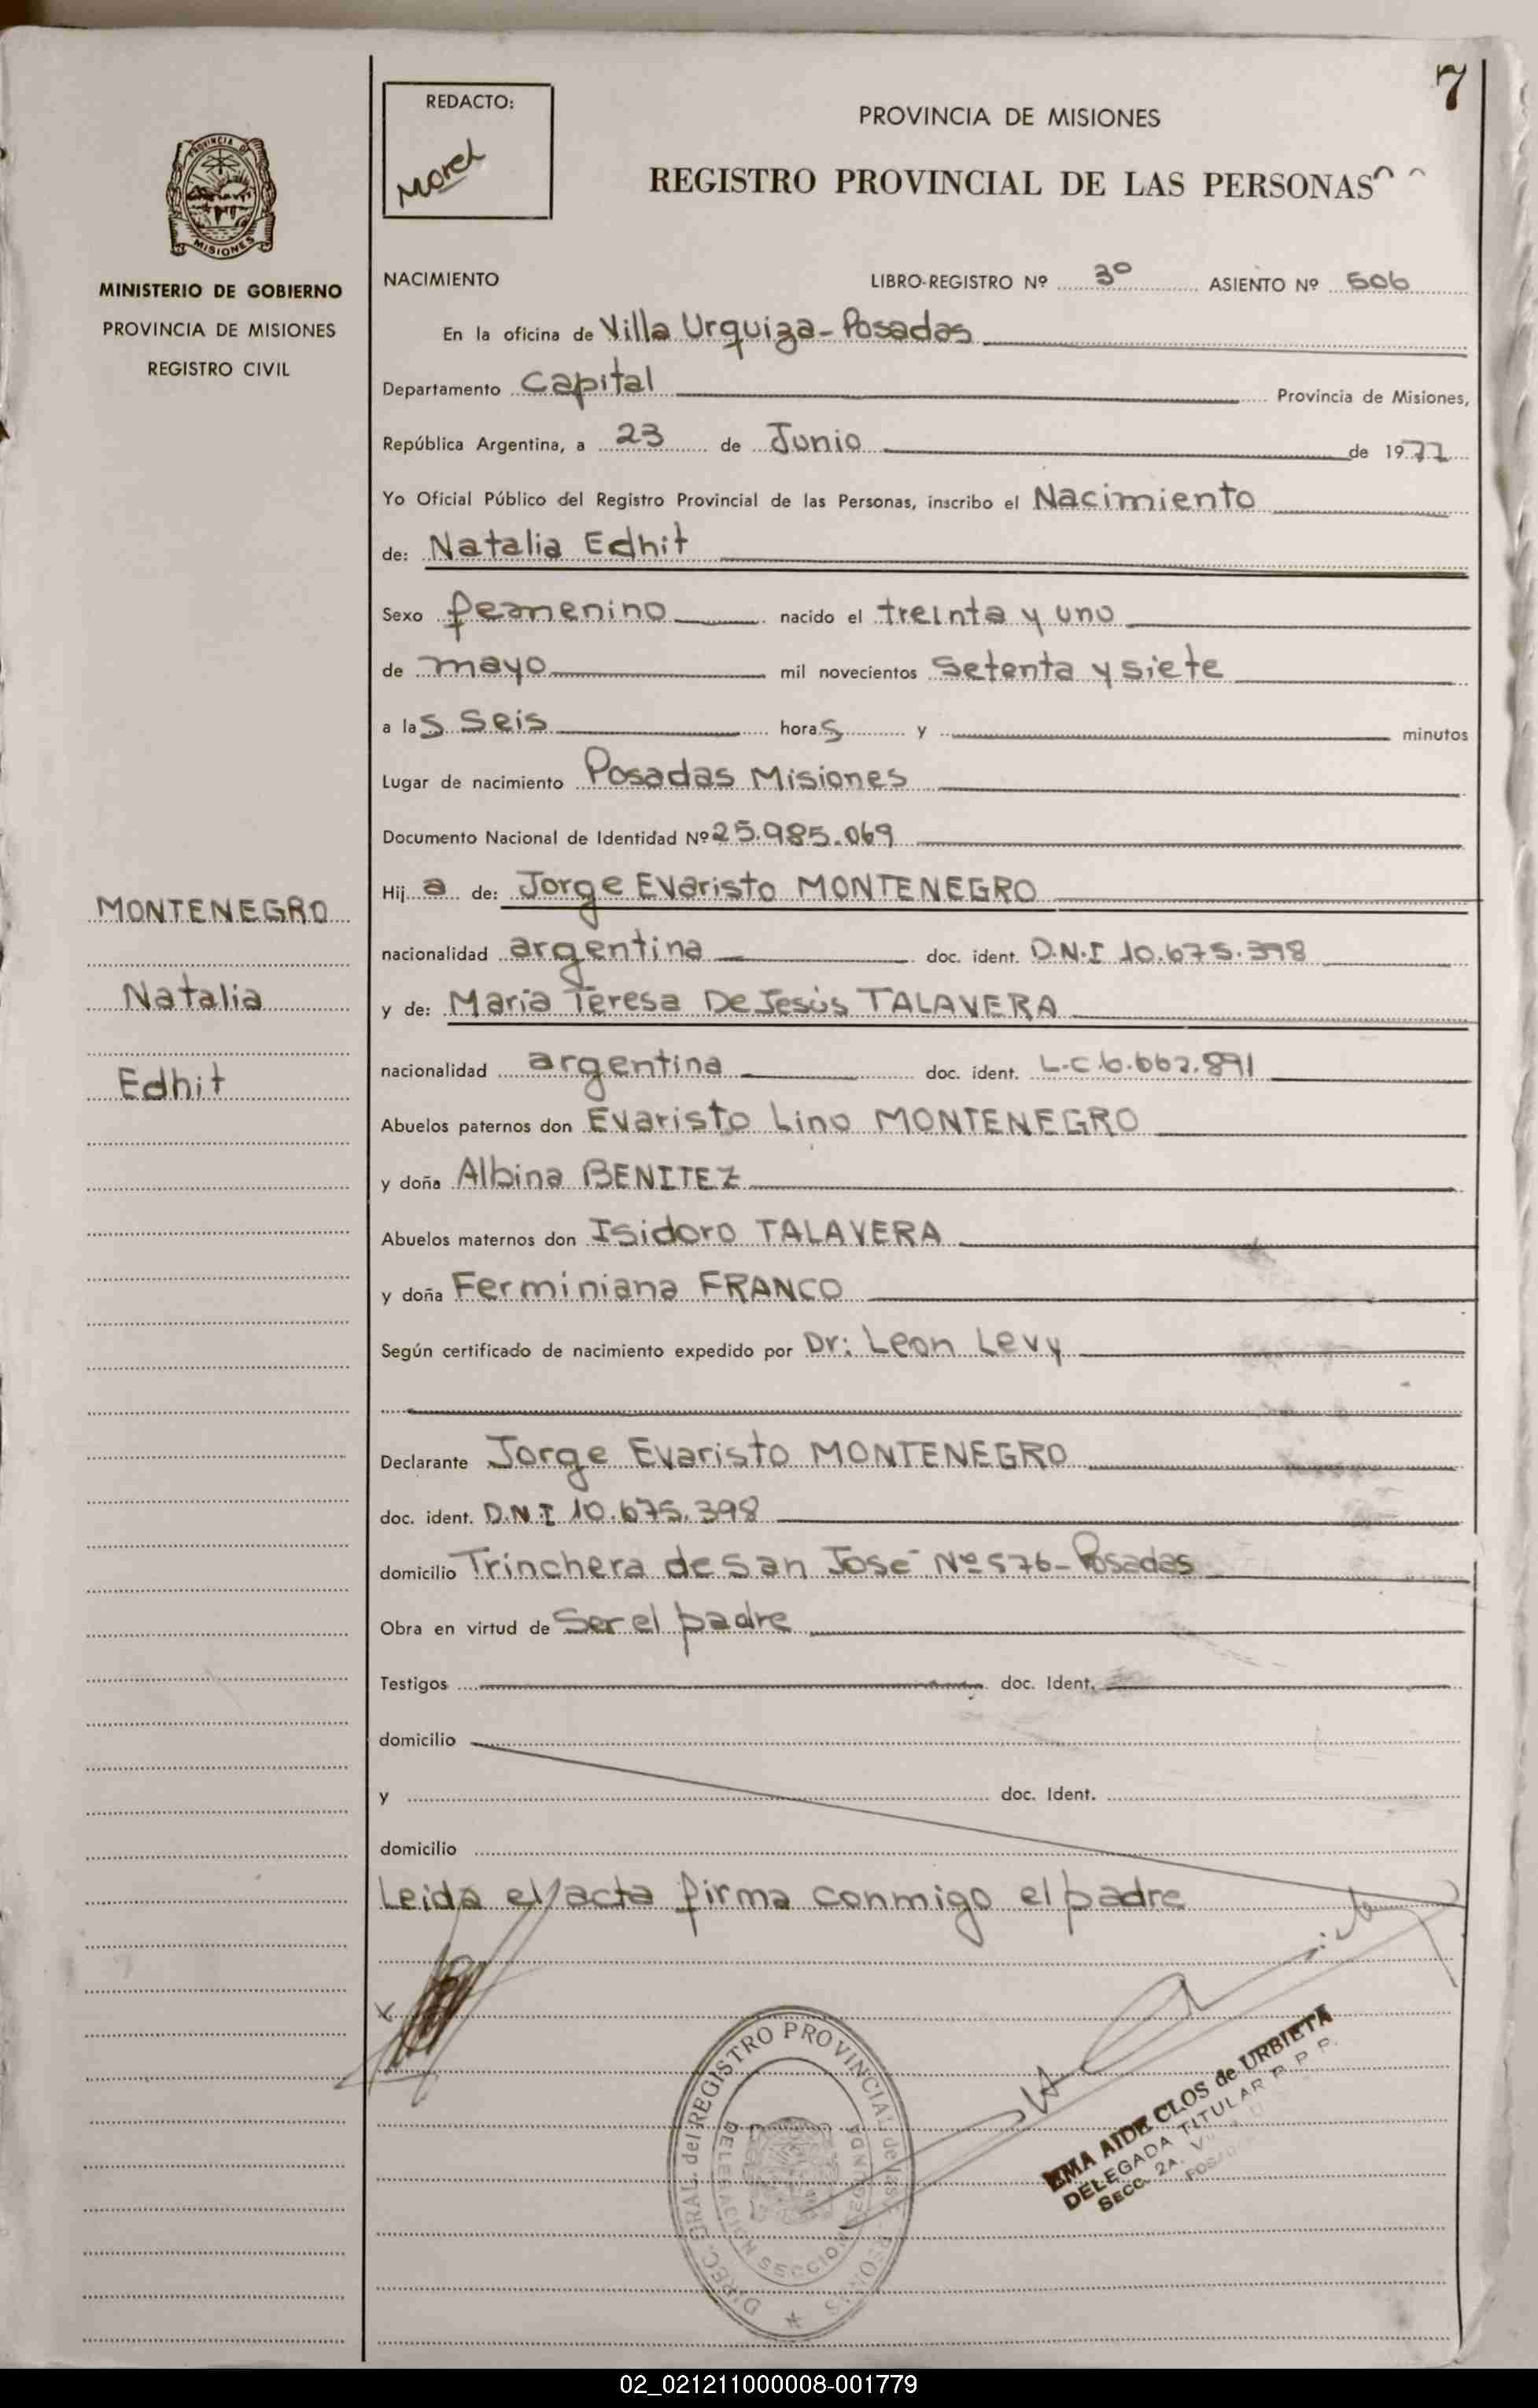 7
REDACTO:
Morel
PROVINCIA DE MISIONES
REGISTRO PROVINCIAL DE LAS PERSONAS
PROVINCIA DE
MISIONES
MINISTERIO DE GOBIERNO
PROVINCIA DE MISIONES
REGISTRO CIVIL
NACIMIENTO LIBRO-REGISTRO Nº 3º ASIENTO Nº 506
En la oficina de Villa Urquiza - Posadas
Departamento Capital Provincia de Misiones,
República Argentina, a 23 de Junio de 1977
Yo Oficial Público del Registro Provincial de las Personas, inscribo el Nacimiento
de: Natalia Edhit
Sexo femenino nacido el treinta y uno
de mayo mil novecientos setenta y siete
a las seis horas y minutos
Lugar de nacimiento Posadas Misiones
Documento Nacional de Identidad Nº 25.985.069
Hija de: Jorge Evaristo MONTENEGRO
MONTENEGRO
nacionalidad argentina doc. ident. D.N.I 10.675.398
Natalia
y de: María Teresa De Jesús TALAVERA
nacionalidad argentina doc. ident. L.C.6.662.891
Edhit
Abuelos paternos don Evaristo Lino MONTENEGRO
y doña Albina BENITEZ
Abuelos maternos don Isidoro TALAVERA
y doña Ferminiana FRANCO
Según certificado de nacimiento expedido por Dr: Leon Levy
Declarante Jorge Evaristo MONTENEGRO
doc. ident. D.N.I 10.675.398
domicilio Trinchera de San José Nº 576 - Posadas
Obra en virtud de Ser el padre
Testigos doc. Ident.
domicilio
y doc. Ident.
domicilio
Leida el acta firma conmigo el padre
DIREC. GRAL. del REGISTRO PROVINCIAL de las PERSONAS
DELEGACION SECCION SEGUNDA
EMA AIDE CLOS de URBIETA
DELEGADA TITULAR R. P. P.
SECC. 2A.
02_021211000008-001779